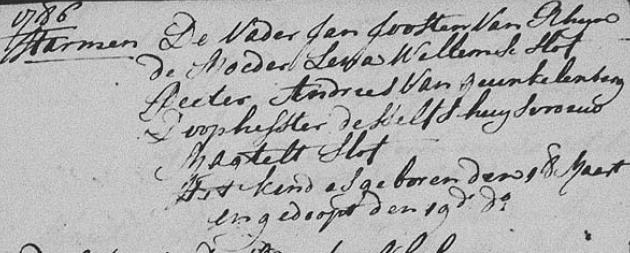 1786
Harmen De Vader Jan Joosten Van Rhyn
de Moeder Lena Willemse Slof
Peeter Andries Van
Doophefster deselfs huysvrouw
Magtelt Slof
Het kind es geboren den 18 Maert
en gedoopt den 19 do